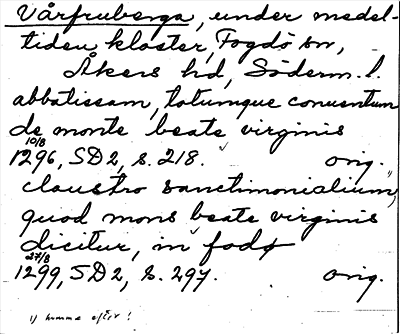 Vårfruberga, under medel-
tiden kloster, Fogdö sn,
Åkers hd, Söderm. l.
abbatissam, totumque conuentum
de monte beate virginis
10/8
1296, SD 2, s. 218. orig.
claustro sanctimonialium,
quod mons beate virginis
dicitur, in fodø
27/8
1299, SD 2, s. 297. orig.
1) komma efter !